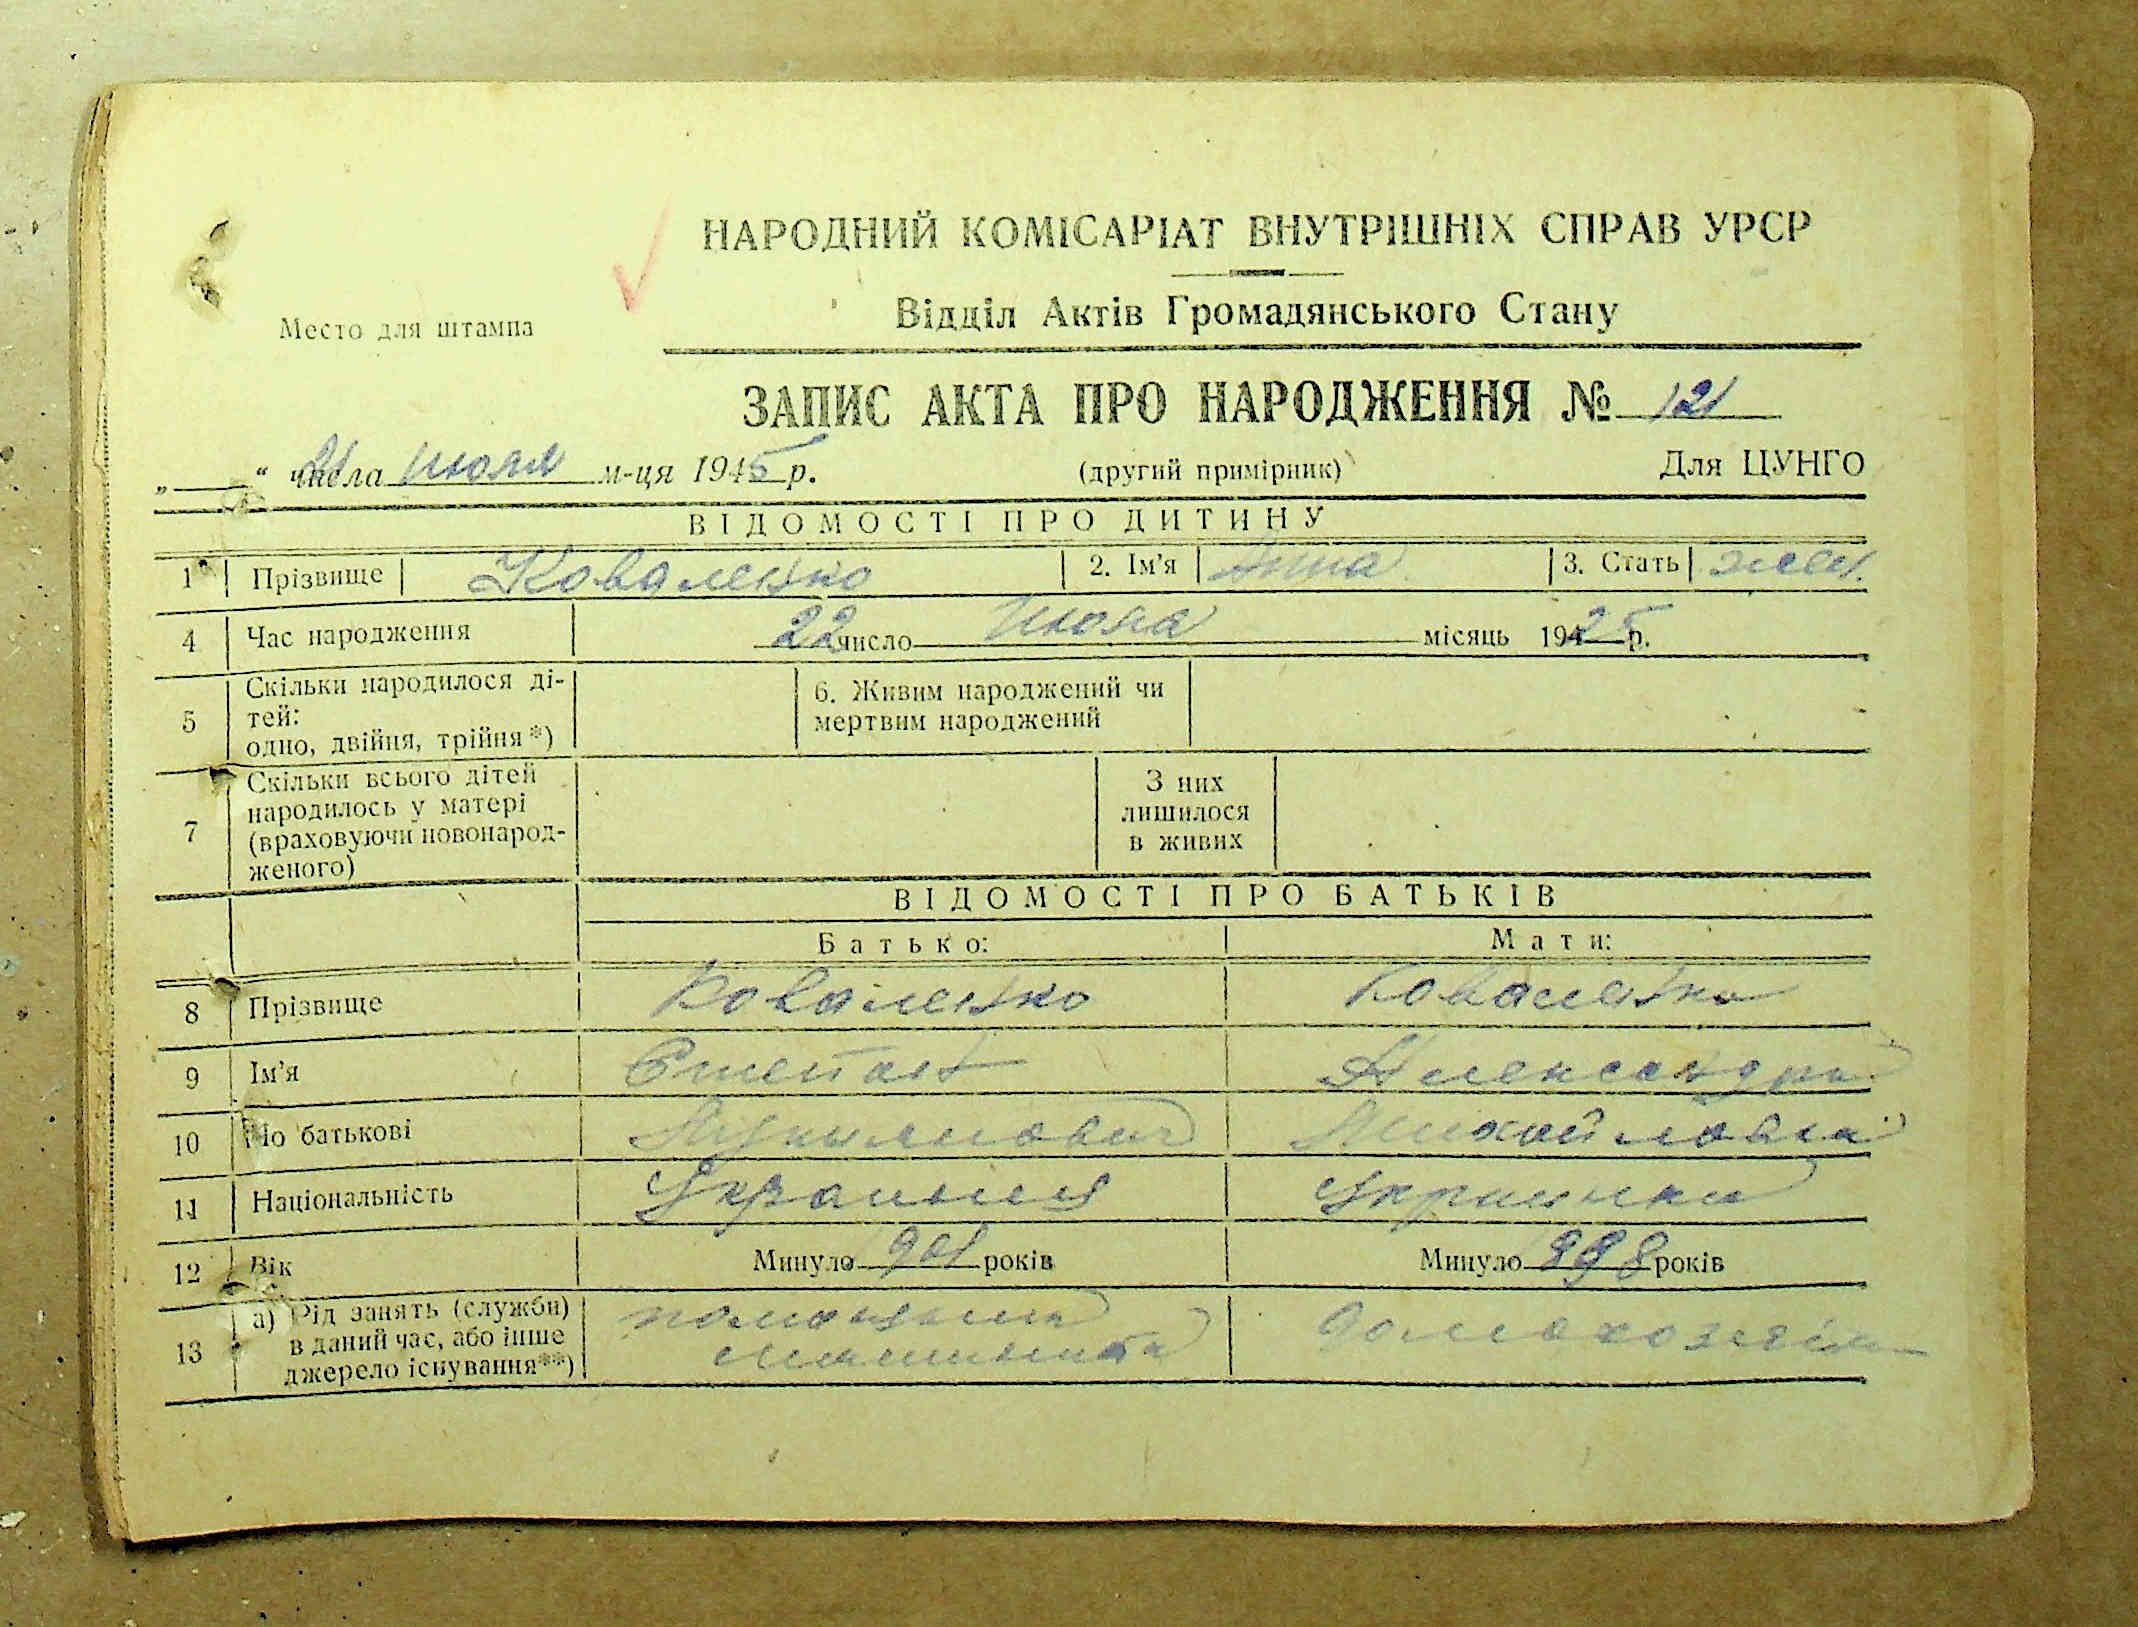 НАРОДНИЙ КОМІСАРІАТ ВНУТРІШНІХ СПРАВ УРСР
Место для штампа
Відділ Актів Громадянського Стану
ЗАПИС АКТА ПРО НАРОДЖЕННЯ № 121
„ “ 21 числа июля м-ця 1945 р. (другий примірник) Для ЦУНГО
ВІДОМОСТІ ПРО ДИТИНУ
1 Прізвище Коваленко 2. Ім'я Анна 3. Стать жен.
4 Час народження 22 число июля місяць 1925 р.
5 Скільки народилося ді-
тей:
одно, двійня, трійня*)
6. Живим народжений чи
мертвим народжений
7 Скільки всього дітей
народилось у матері
(враховуючи новонарод-
женого)
З них
лишилося
в живих
ВІДОМОСТІ ПРО БАТЬКІВ
Батько: Мати:
8 Прізвище Коваленко Коваленко
9 Ім'я Степан Александра
10 По батькові Михайловна
11 Національність Украинец Украинка
12 Вік Минуло 901 років Минуло 898 років
13 а) Рід занять (служби)
в даний час, або інше
джерело існування**)
помощник
машиниста
домохозяйка